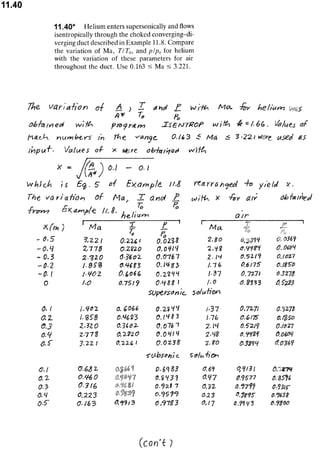 11.40
11.40* Helium enters supersonically and flows
isentropically through the choked converging–di-
verging duct described in Example 11.8. Compare
the variation of Ma, T/T₀, and p/p₀ for helium
with the variation of these parameters for air
throughout the duct. Use 0.163 ≤ Ma ≤ 3.221.
The variation of A/A*, T/T₀ and P/P₀ with Ma for helium was
obtained with program ISENTROP with k = 1.66. Values of
Mach numbers in the range 0.163 ≤ Ma ≤ 3.221 were used as
input. Values of x were obtained with
x = √((A/A*) 0.1 - 0.1
which is Eq. 5 of Example 11.8 rearranged to yield x.
The variation of Ma, T/T₀ and P/P₀ with x for air obtained
from Example 11.8.
helium air
x(m) Ma T/T₀ P/P₀ Ma T/T₀ P/P₀
-0.5 3.221 0.2261 0.0238 2.80 0.3894 0.0369
-0.4 2.778 0.2820 0.0414 2.48 0.4484 0.0604
-0.3 2.320 0.3602 0.0767 2.14 0.5219 0.1027
-0.2 1.858 0.4683 0.1483 1.76 0.6175 0.1850
-0.1 1.402 0.6066 0.2844 1.37 0.7271 0.3278
0 1.0 0.7519 0.4881 1.0 0.8333 0.5283
supersonic solution
0.1 1.402 0.6066 0.2844 1.37 0.7271 0.3278
0.2 1.858 0.4683 0.1483 1.76 0.6175 0.1850
0.3 2.320 0.3602 0.0767 2.14 0.5219 0.1027
0.4 2.778 0.2820 0.0414 2.48 0.4484 0.0604
0.5 3.221 0.2261 0.0238 2.80 0.3894 0.0369
subsonic solution
0.1 0.682 0.8669 0.6983 0.69 0.9131
0.2 0.460 0.9347 0.8439 0.47 0.9577 0.8596
0.3 0.316 0.9681 0.9217 0.32 0.9799
0.4 0.223 0.9839 0.9599 0.23 0.9895 0.9638
0.5 0.163 0.9913 0.9783 0.17 0.9943 0.9800
(con't)